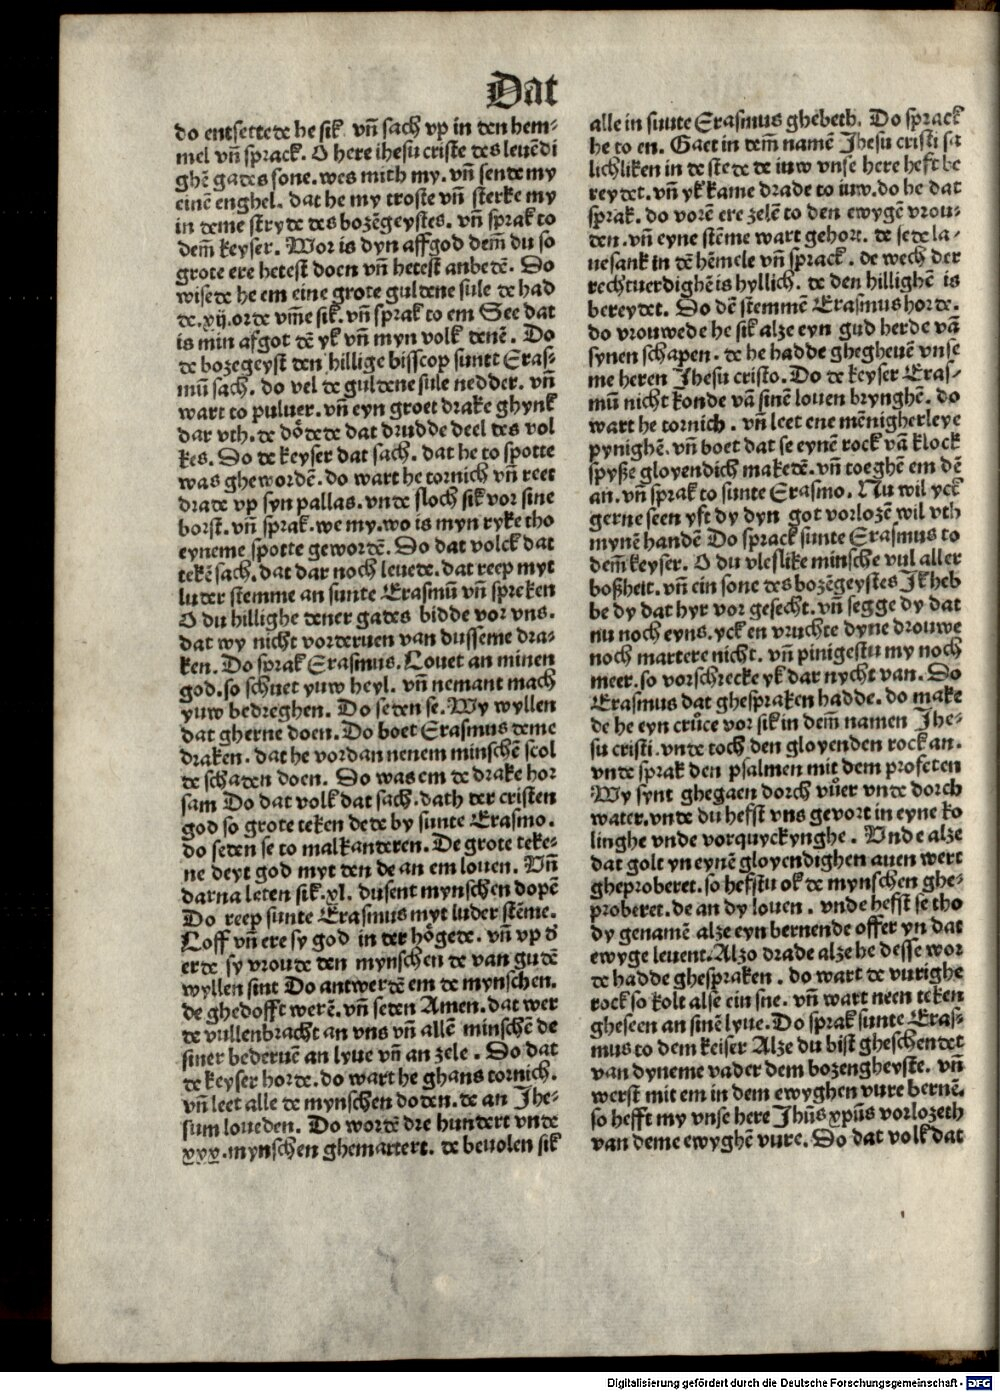 Dat
do entsettede he sik vn̄ sach vp in den hem-
mel vn̄ sprack. O here ihesu criste des leuēdi
ghē gades sone. wes mith my. vn̄ sende my
einē enghel. dat he my troste vn̄ sterke my
in deme stryde des bozēgeystes. vn̄ sprak to
dem̄ keyser. Wor is dyn affgod dem̄ du so
grote ere hetest doen vn̄ hetest anbedē. Do
wisede he em eine grote guldene sule de had
de. xij. orde vm̄e sik. vn̄ sprak to em See dat
is min afgot dē yk vn̄ myn volk denē. Do
de bozegeyst den hillige bisscop suntt Eras-
mū sach. do vel de guldene sule nedder. vn̄
wart to puluer. vn̄ eyn groet drake ghynk
dar vth. de dödede dat drudde deel des vol
kes. Do de keyser dat sach. dat he to spotte
was ghewordē. do wart he tornich vn̄ reet
drade vp syn pallas. vnde sloch sik vor sine
borst. vn̄ sprak. we my. wo is myn ryke tho
eyneme spotte gewordē. Do dat volck dat
tekē sach. dat dar noch leuede. dat reep myt
luder stemme an sunte Erasmū vn̄ spreken
O du hillighe dener gades bidde vor vns.
dat wy nicht vorderuen van dusseme dra-
ken. Do sprak Erasmus. Louet an minen
god. so schuet yuw heyl. vn̄ nemant mach
yuw bedreghen. Do seden se. Wy wyllen
dat gherne doen. Do boet Erasmus deme
draken. dat he vordan nenem minschē scol
de schaden doen. Do was em de drake hor
sam Do dat volk dat sach. dath der cristen
god so grote teken dede by sunte Erasmo.
do seden se to malkanderen. De grote teke-
ne deyt god myt den de an em louen. Vnn̄
darna leten sik. xl. dusent mynschen dopē
Do reep sunte Erasmus myt luder stēme.
Loff vnn̄ ere sy god in der högede. vnn̄ vp d̕
erde sy vroude den mynschen de van gudē
wyllen sint Do antwerdē em de mynschen.
de ghedofft werē. vnn̄ seden Amen. dat wer
de vullenbracht an vns vnn̄ allē minschē de
siner bederuē an lyue vnn̄ an zele. Do dat
de keyser horde. do wart he ghans tornich.
vnn̄ leet alle de mynschen doden. de an Jhe-
sum loueden. Do wordē dre hundert vnde
xxx. mynschen ghemartert. de beuolen sik
alle in sunte Erasmus ghēbeth. Do sprack
he to en. Gaet in dem̄ namē Jhesu cristi sa
lichliken in de stede de iuw vnse here heft be
reydet. vnn̄ yk kame drade to iuw. do he dat
sprak. do vorē ere zelē to den ewygē vrou-
den. vnn̄ eyne stēme wart gehort. de sede la-
uesank in dē hēmele vnn̄ sprack. de wech der
rechtuerdighē is hyllich. de den hillighē is
bereydet. Do dē stemmē Erasmus horde.
do vrouwede he sik alze eyn gud herde vā
synen schapen. de he hadde ghegheuē vnse
me heren Jhesu cristo. Do de keyser Eras-
mū nicht konde vā sinē louen brynghē. do
wart he tornich. vnn̄ leet ene mēnigherleye
pynighē. vnn̄ boet dat se eynē rock vā klock
spyße gloyendich makedē. vnn̄ toeghē em dē
an. vnn̄ sprak to sunte Erasmo. Nu wil yck
gerne seen yft dy dyn got vorlozē wil vth
mynē handē Do sprack sunte Erasmus to
dem̄ keyser. O du vleslike minsche vul aller
boßheit. vnn̄ ein sone des bozēgeystes Jk heb
be dy dat hyr vor gesecht. vnn̄ segge dy dat
nu noch eyns. yck en vruchte dyne drouwe
noch martere nicht. vnn̄ pinigestu my noch
meer. so vorschrecke yk dar nycht van. Do
Erasmus dat ghespraken hadde. do make
de he eyn crůce vor sik in dem̄ namen Jhe-
su cristi. vnde toch den gloyenden rock an.
vnde sprak den psalmen mit dem profeten
Wy synt ghegaen dorch vůer vnde dorch
water. vnde du hefst vns gevort in eyne ko
linghe vnde vorquyckynghe. Vnde alze
dat golt yn eynē gloyendighen auen wert
gheproberet. so hefstu ok de mynschen ghe-
proberet. de an dy louen. vnde hefst se tho
dy genamē alze eyn bernende offer yn dat
ewyge leuent. Alzo drade alze he desse wor
de hadde ghespraken. do wart de vurighe
rock so kolt alse ein sne. vnn̄ wart neen teken
gheseen an sinē lyue. Do sprak sunte Eras-
mus to dem keiser Alze du bist gheschendet
van dyneme vader dem bozengheyste. vnn̄
werst mit em in dem ewyghen vure bernē.
so hefft my vnse here Jhūs xpūs vorlozeth
van deme ewyghē vure. Do dat volk dat
Digitalisierung gefördert durch die Deutsche Forschungsgemeinschaft - DFG